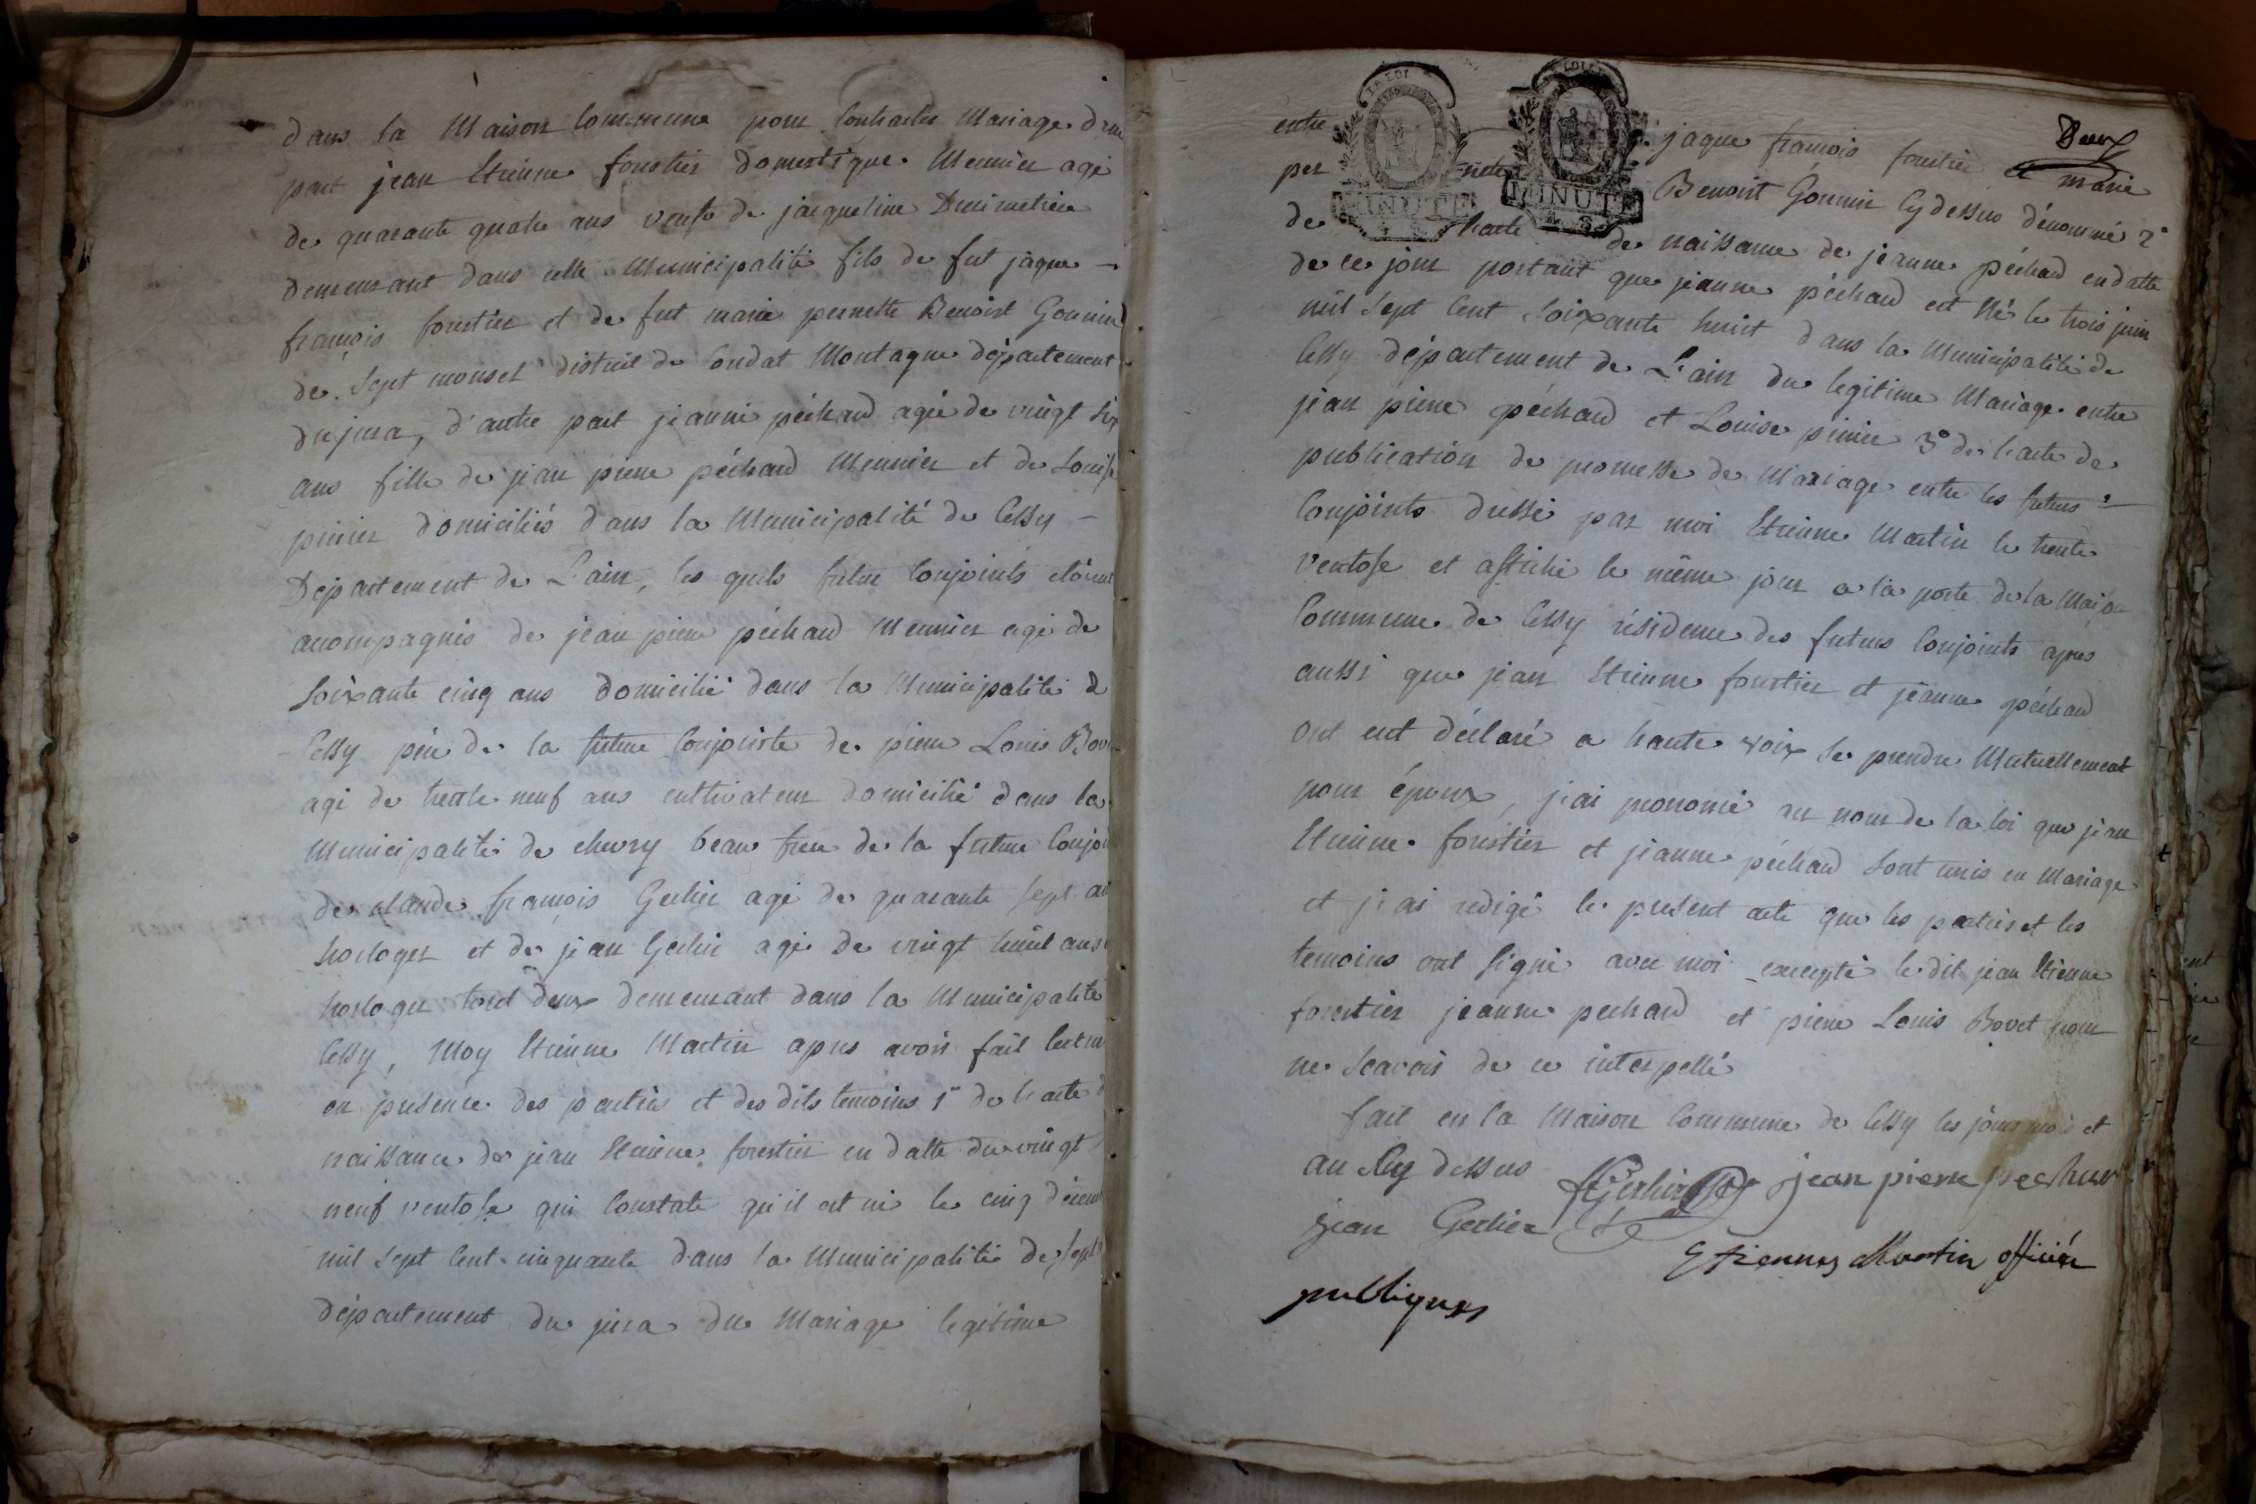 dans la Maison Commune pour Contracter Mariage d'une
part jean Etienne forestier domestique Meunier agé
de quarante quatre ans veuf de jacqueline
demeurant dans cette Municipalité fils de fut jàque
françois forestier et de fut marie pernette Benoist Gonnin
de Sept monsel district de Condat Montagne département
du jura, d'autre part jeanne péchard agée de vingt six
ans fille de jean pierre péchard Meunier et de Louise
domiciliés dans la Municipalité de Cessy
Département de L'ain, les quels futur Conjoints étoient
acompagnés de jean pierre péchard Meunier agé de
Soixante cinq ans domicilié dans la Municipalité de
Cessy père de la future Conjointe de pierre Louis Bovet
agé de trente neuf ans cultivateur domicilié dans la
Municipalité de chevry beau frere de la future Conjoi
de claude françois Gerlier agé de quarante sept an
horloger et de jean Gerlier agé de vingt huit ans
horloger tout deux demeurant dans la Municipalité
Cessy, Moy Etienne Martin apres avoir fait lectur
en presence des parties et des dits temoins 1° de l'acte d
naissance de jean Etienne forestier en datte du vingt
neuf ventose qui Constate qu'il est né le cinq décem
mil sept Cent cinquante dans la Municipalité de sept
département du jura du Mariage legitime
Deux
entre jaque françois forestier et marie
per nette Benoist Gonnin Cy dessus dénommé 2°
de l'acte de naissance de jeanne péchard en datte
de ce jour portant que jeanne péchard est né le trois juin
mil Sept Cent Soixante huit dans la Municipalité de
Cessy département de L'ain du legitime Mariage entre
jean pierre péchard et Louise 3° de l'acte de
publication de promesse de Mariage entre les futurs
Conjoints dressé par moi Etienne Martin le trente
ventose et affiché le même jour a la porte de la Maison
Commune de Cessy résidence des futurs Conjoints apres
aussi que jean Etienne forestier et jeanne péchard
ont eut déclaré a haute voix se prendre Mutuellement
pour époux, j'ai prononcé au nom de la loi que jean
Etienne forestier et jeanne péchard Sont unis en Mariage
et j'ai redigé le present acte que les parties et les
temoins ont signé avec moi excepté le dit jean Etienne
forestier jeanne pechard et pierre Louis Bovet pour
ne Scavoir de ce interpellé
fait en la Maison Commune de Cessy les jour mois et
an Cy dessus Gerlier jean pierre pechar
jean Gerlier
Etienne Martin officier
publiques
LA LOI
MINUTE
LA LOI
MINUTE